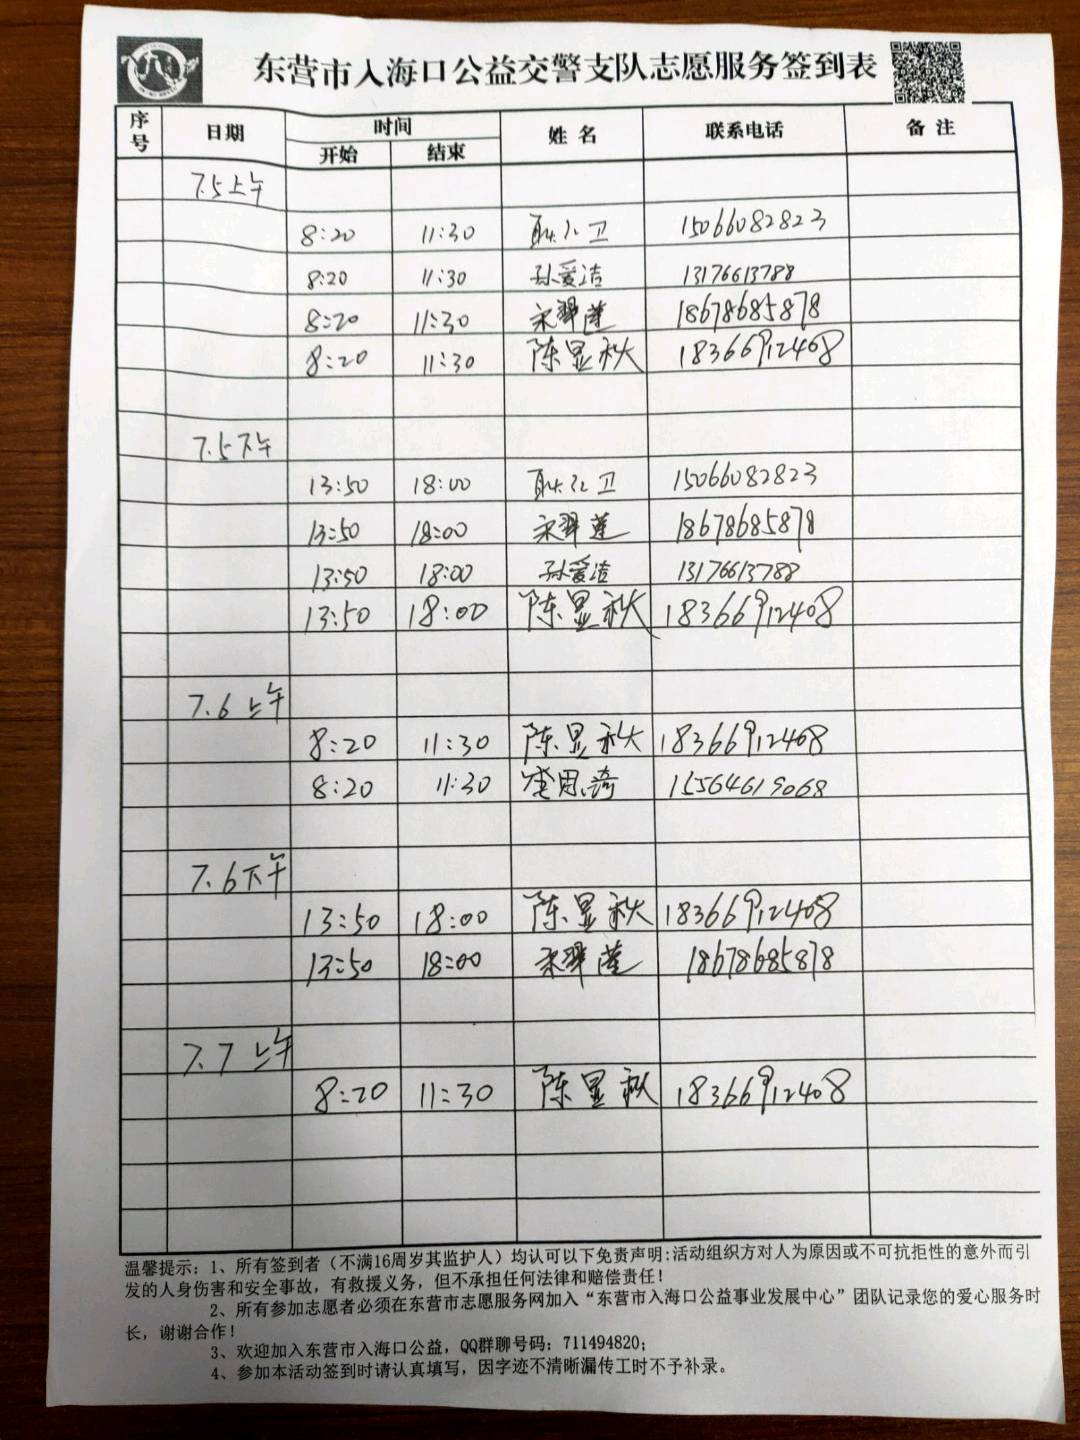 东营市入海口公益交警支队志愿服务签到表
序号 日期 时间 姓名 联系电话 备注
开始 结束
7.5上午
8:20 11:30 耿仁卫 15066082823
8:20 11:30 孙爱洁 13176613788
8:20 11:30 宋翠莲 18678685878
8:20 11:30 陈显秋 18366912408
7.5下午
13:50 18:00 耿仁卫 15066082823
13:50 18:00 宋翠莲 18678685878
13:50 18:00 孙爱洁 13176613788
13:50 18:00 陈显秋 18366912408
7.6上午
8:20 11:30 陈显秋 18366912408
8:20 11:30 思琦 15564619068
7.6下午
13:50 18:00 陈显秋 18366912408
13:50 18:00 宋翠莲 18678685878
7.7上午
8:20 11:30 陈显秋 18366912408
温馨提示：1、所有签到者（不满16周岁其监护人）均认可以下免责声明:活动组织方对人为原因或不可抗拒性的意外而引
发的人身伤害和安全事故，有救援义务，但不承担任何法律和赔偿责任！
2、所有参加志愿者必须在东营市志愿服务网加入“东营市入海口公益事业发展中心”团队记录您的爱心服务时
长，谢谢合作！
3、欢迎加入东营市入海口公益，QQ群聊号码：711494820；
4、参加本活动签到时请认真填写，因字迹不清晰漏传工时不予补录。